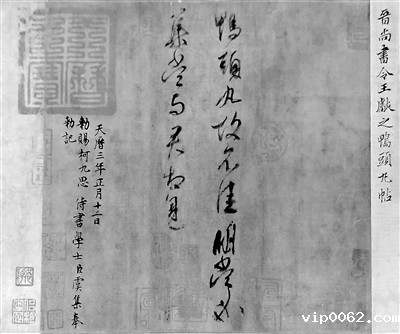 晉尚書令王獻之鴨頭丸帖
鴨頭丸故不佳明當必
集當與君相見
天曆三年正月十二日
勑賜柯九思侍書學士臣虞集奉
勑記
天曆之寶
vip0062.com